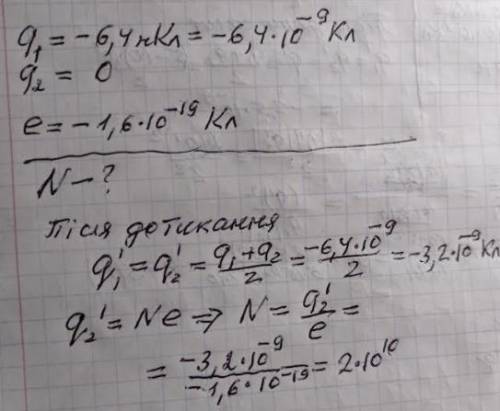 q₁ = −6,4 нКл = −6,4·10⁻⁹ Кл
q₂ = 0
e = −1,6·10⁻¹⁹ Кл
N − ?
Після дотикання
q₁' = q₂' = (q₁+q₂)/2 = (−6,4·10⁻⁹)/2 = −3,2·10⁻⁹ Кл
q₂' = Ne ⇒ N = q₂'/e =
= (−3,2·10⁻⁹)/(−1,6·10⁻¹⁹) = 2·10¹⁰